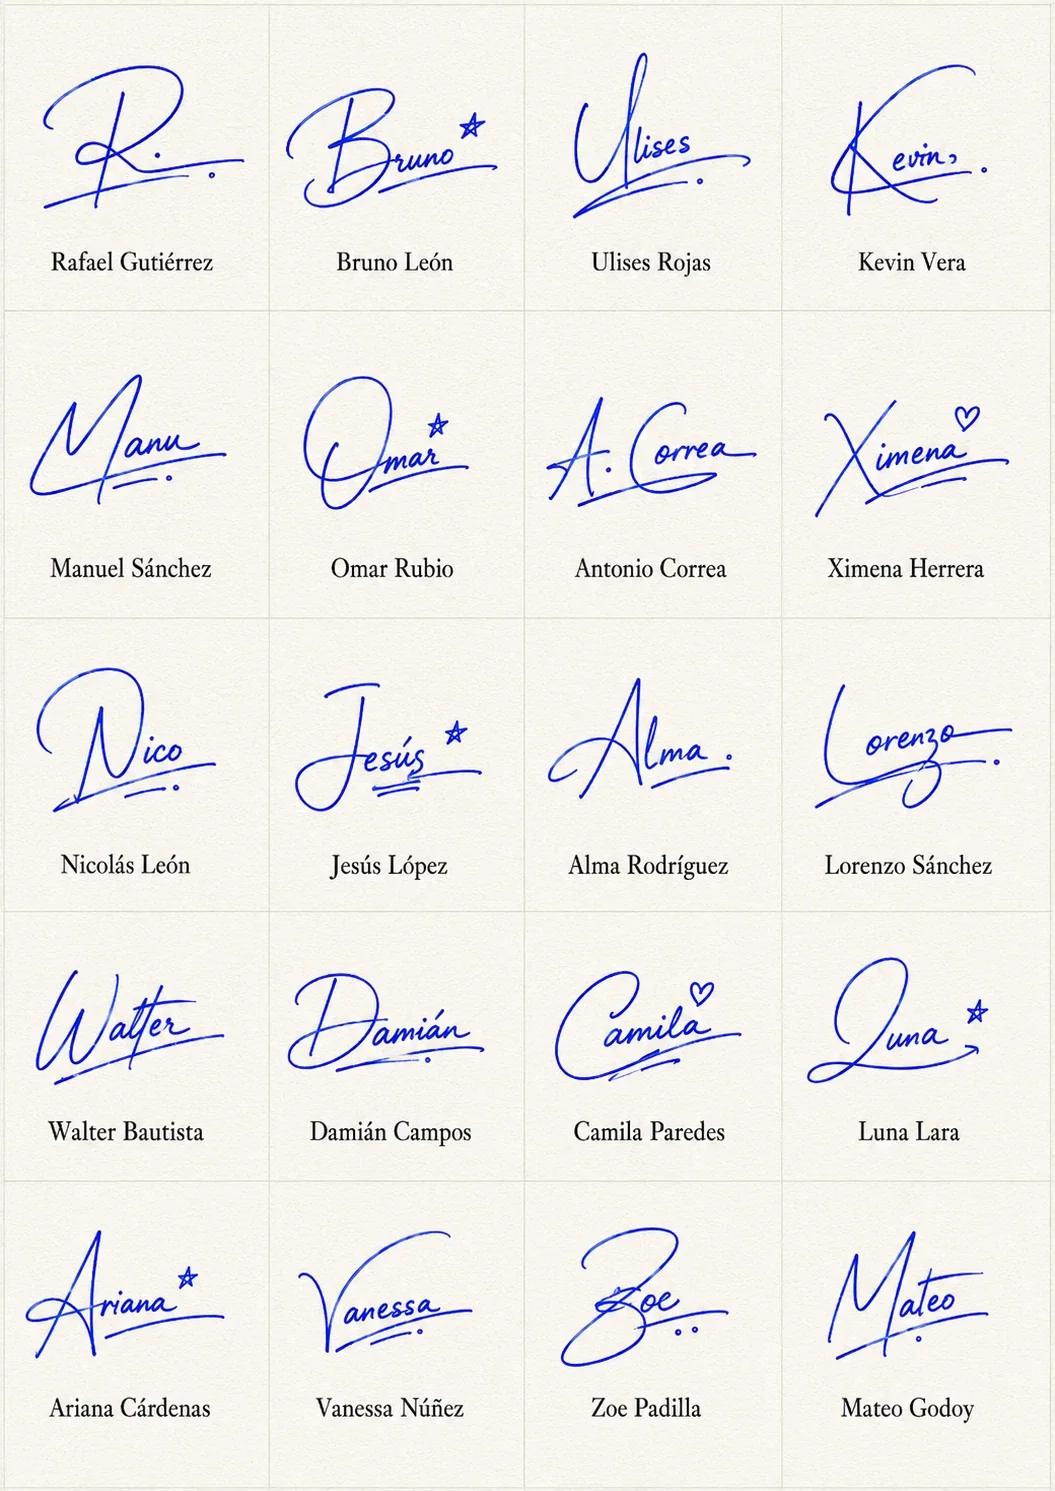 R.
Bruno
Ulises
Kevin,
Rafael Gutiérrez
Bruno León
Ulises Rojas
Kevin Vera
Manu
Omar
A. Correa
Ximena
Manuel Sánchez
Omar Rubio
Antonio Correa
Ximena Herrera
Nico
Jesús
Alma .
Lorenzo
Nicolás León
Jesús López
Alma Rodríguez
Lorenzo Sánchez
Walter
Damián
Camila
Luna
Walter Bautista
Damián Campos
Camila Paredes
Luna Lara
Ariana
Vanessa
Zoe
Mateo
Ariana Cárdenas
Vanessa Núñez
Zoe Padilla
Mateo Godoy